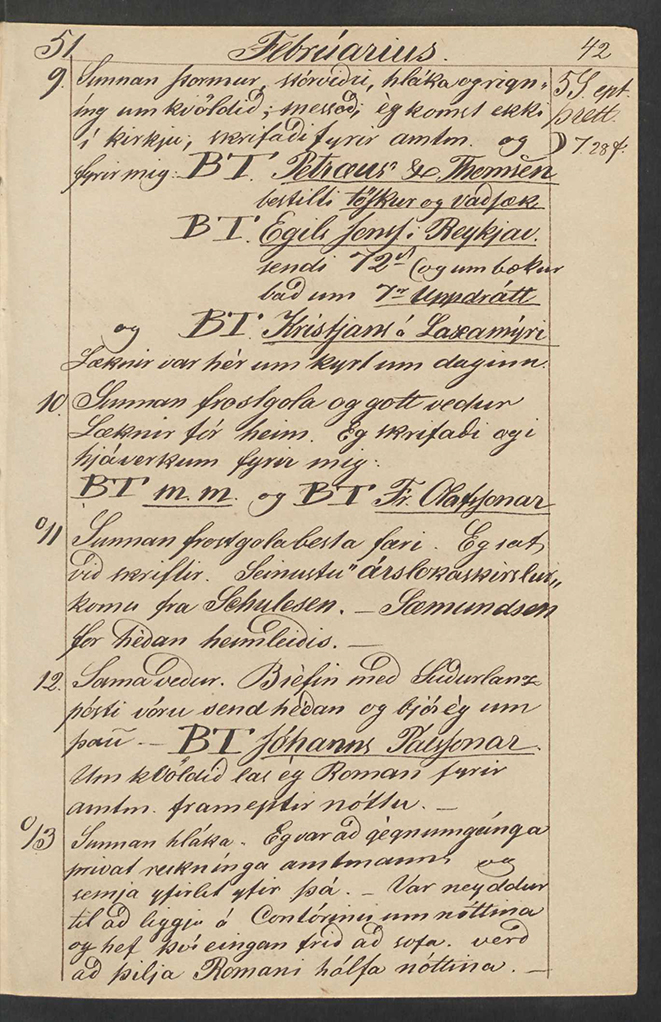 51 Februarius. 42
9. Sunnan stormur, stórviðri, hláka og rign- 5 S. ept.
ing um kvöldið; messað; èg komst ekki þrett.
í kirkju, skrifaði fyrir amtm. og 7.28 f.
fyrir mig: BT. Petræus & Thomsèn
bestilti töskur og vaðsæk
BT. Egils Jonss. í Reykjav.
sendi 72 (og um bækur
bað um 7 Uppdrátt
og BT. Kristjans á Laxamýri
Læknir var hér um kyrt um daginn.
10. Sunnan frostgola og gott veður
Læknir fór heim. Eg skrifaði og í
hjáverkum fyrir mig:
BT m. m. og BT Fr. Olafssonar
11 Sunnan frostgola besta færi. Eg sat
við skriftir. Seinustu "árslokaskirslur„
komu fra Schulesen. — Sæmundsen
for hèðan heimleiðis. —
12. Sama veður. Brèfin með Suðurlanz
pósti vóru send hèðan og bjó èg um
þau — BT Jóhanns Pálssonar.
Um kvöldið las èg Roman fyrir
amtm. frameptir nóttu. —
13 Sunnan hláka. Eg var að gègnumgánga
privat reiknínga amtmanns og
semja yfirlit yfir þá. — Var neyddur
til að liggja á Contórinu um nóttina
og hef því eingan frið að sofa. verð
að þilja Romani hálfa nóttina. —